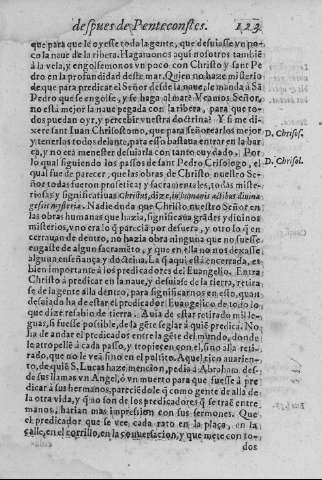 despues de Pentecostes. 123
que para que le oyesse toda la gente, que desuiasse vn po-
co la naue de la ribera. Hagamonos aqui nosotros tambiẽ
à la vela, y engolfemonos vn poco con Christo y sant Pe
dro en la profundidad deste mar. Quien no haze misterio
de que para predicar el Señor desde la naue, le manda à Sã
Pedro que se engolfe, y se haga al mar? Veamos Señor,
no està mejor la naue pegada con la ribera, para que to-
dos puedan oyr, y percebir vuestra doctrina? Y si me di-
xere sant Iuan Chrisostomo, que para señorearlos mejor
y tenerlos todos delante, para esso bastaua entrar en la bar
ca, y no era menester desuiarla con tanto cuydado. Por
lo qual siguiendo los passos de sant Pedro Crisologo, el
qual fue de parecer, que las obras de Christo nuestro Se-
ñor todas fueron profeticas y sacramentales, todas miste-
riosas y significatiuas Christus, dize, in humanis actibus diuina
gessit mysteria. Nadie duda que Christo nuestro Señor en
las obras humanas que hazia, significaua grãdes y diuinos
misterios, vno era lo q̃ parecia por defuera, y otro lo q̃ en
cerrauan de dentro, no hazia obra ninguna que no fuesse
engaste de algun sacramẽto, y que en ella no nos dexasse
alguna enseñança y doctrina. La q̃ aqui està encerrada, es
bien importante à los predicadores del Euangelio. Entra
Christo à predicar en la naue, y desuiase de la tierra, retira
se de la gente alla dentro, para significarnos en esto, quan
desasido ha de estar el predicador Euangelico de todo lo
que dize resabio de tierra. Auia de estar retirado mil le-
guas, si fuesse possible, de la gẽte seglar à quiẽ predica. No
ha de andar el predicador entre la gẽte del mundo, donde
le atropellẽ à cada passo, y tropiecen con el, sino alla reti-
rado, que no le vea sino en el pulpito. Aquel rico auarien-
to, de quiẽ S. Lucas haze mencion, pedia à Abraham des-
de sus llamas vn Angel, ò vn muerto para que fuesse à pre
dicar à sus hermanos, pareciẽdole q̃ como gente de alla de
la otra vida, y q̃ no son de los predicadores q̃ se traẽ entre
manos, harian mas impression con sus sermones. Que
el predicador que se vee cada rato en la plaça, en la
calle, en el corrillo, en la conuersacion, y que mete con to-
dos
D. Chrisos.
D. Chrisol.